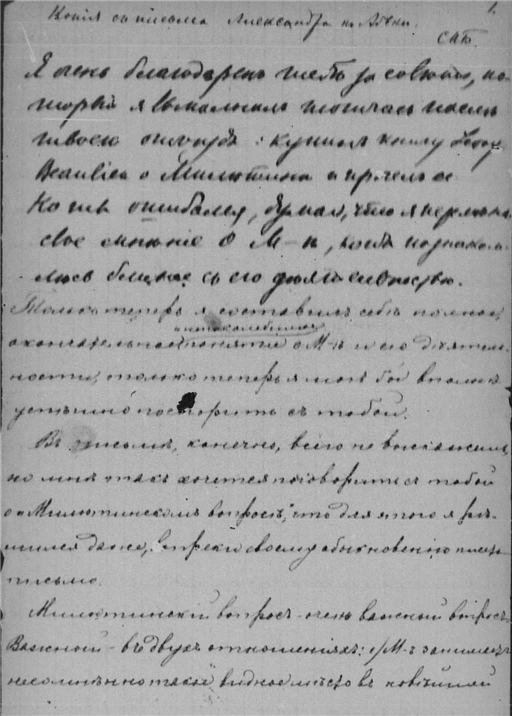 1.
Копія съ письма Александра къ
СПб.
Я очень благодаренъ тебѣ за совѣтъ, ко-
торый я выполнилъ тотчасъ послѣ
твоего отъѣзда: купилъ книгу Leroy
Beaulieu о Милютинѣ и прочелъ ее
Но ты ошибался, думая, что я перемѣню
свое мнѣніе о М-нѣ, когда познаком-
люсь ближе съ его дѣятельностью.
Только теперь я составилъ себѣ полное,
и непоколебимое
окончательное понятіе о М-нѣ и его дѣятель-
ности, только теперь я могъ бы вполнѣ
успѣшно поспорить съ тобой.
Въ письмѣ, конечно, всего не выскажешь,
но мнѣ такъ хочется поговорить съ тобой
о Милютинскомъ вопросѣ, что для этого я рѣ-
шился даже, вопреки своему обыкновенію писать
письмо.
Милютинскій вопросъ - очень важный вопросъ.
Важный - въ двухъ отношеніяхъ: 1/ М-нъ занимаетъ
несомнѣнно такое видное мѣсто въ новѣйшей